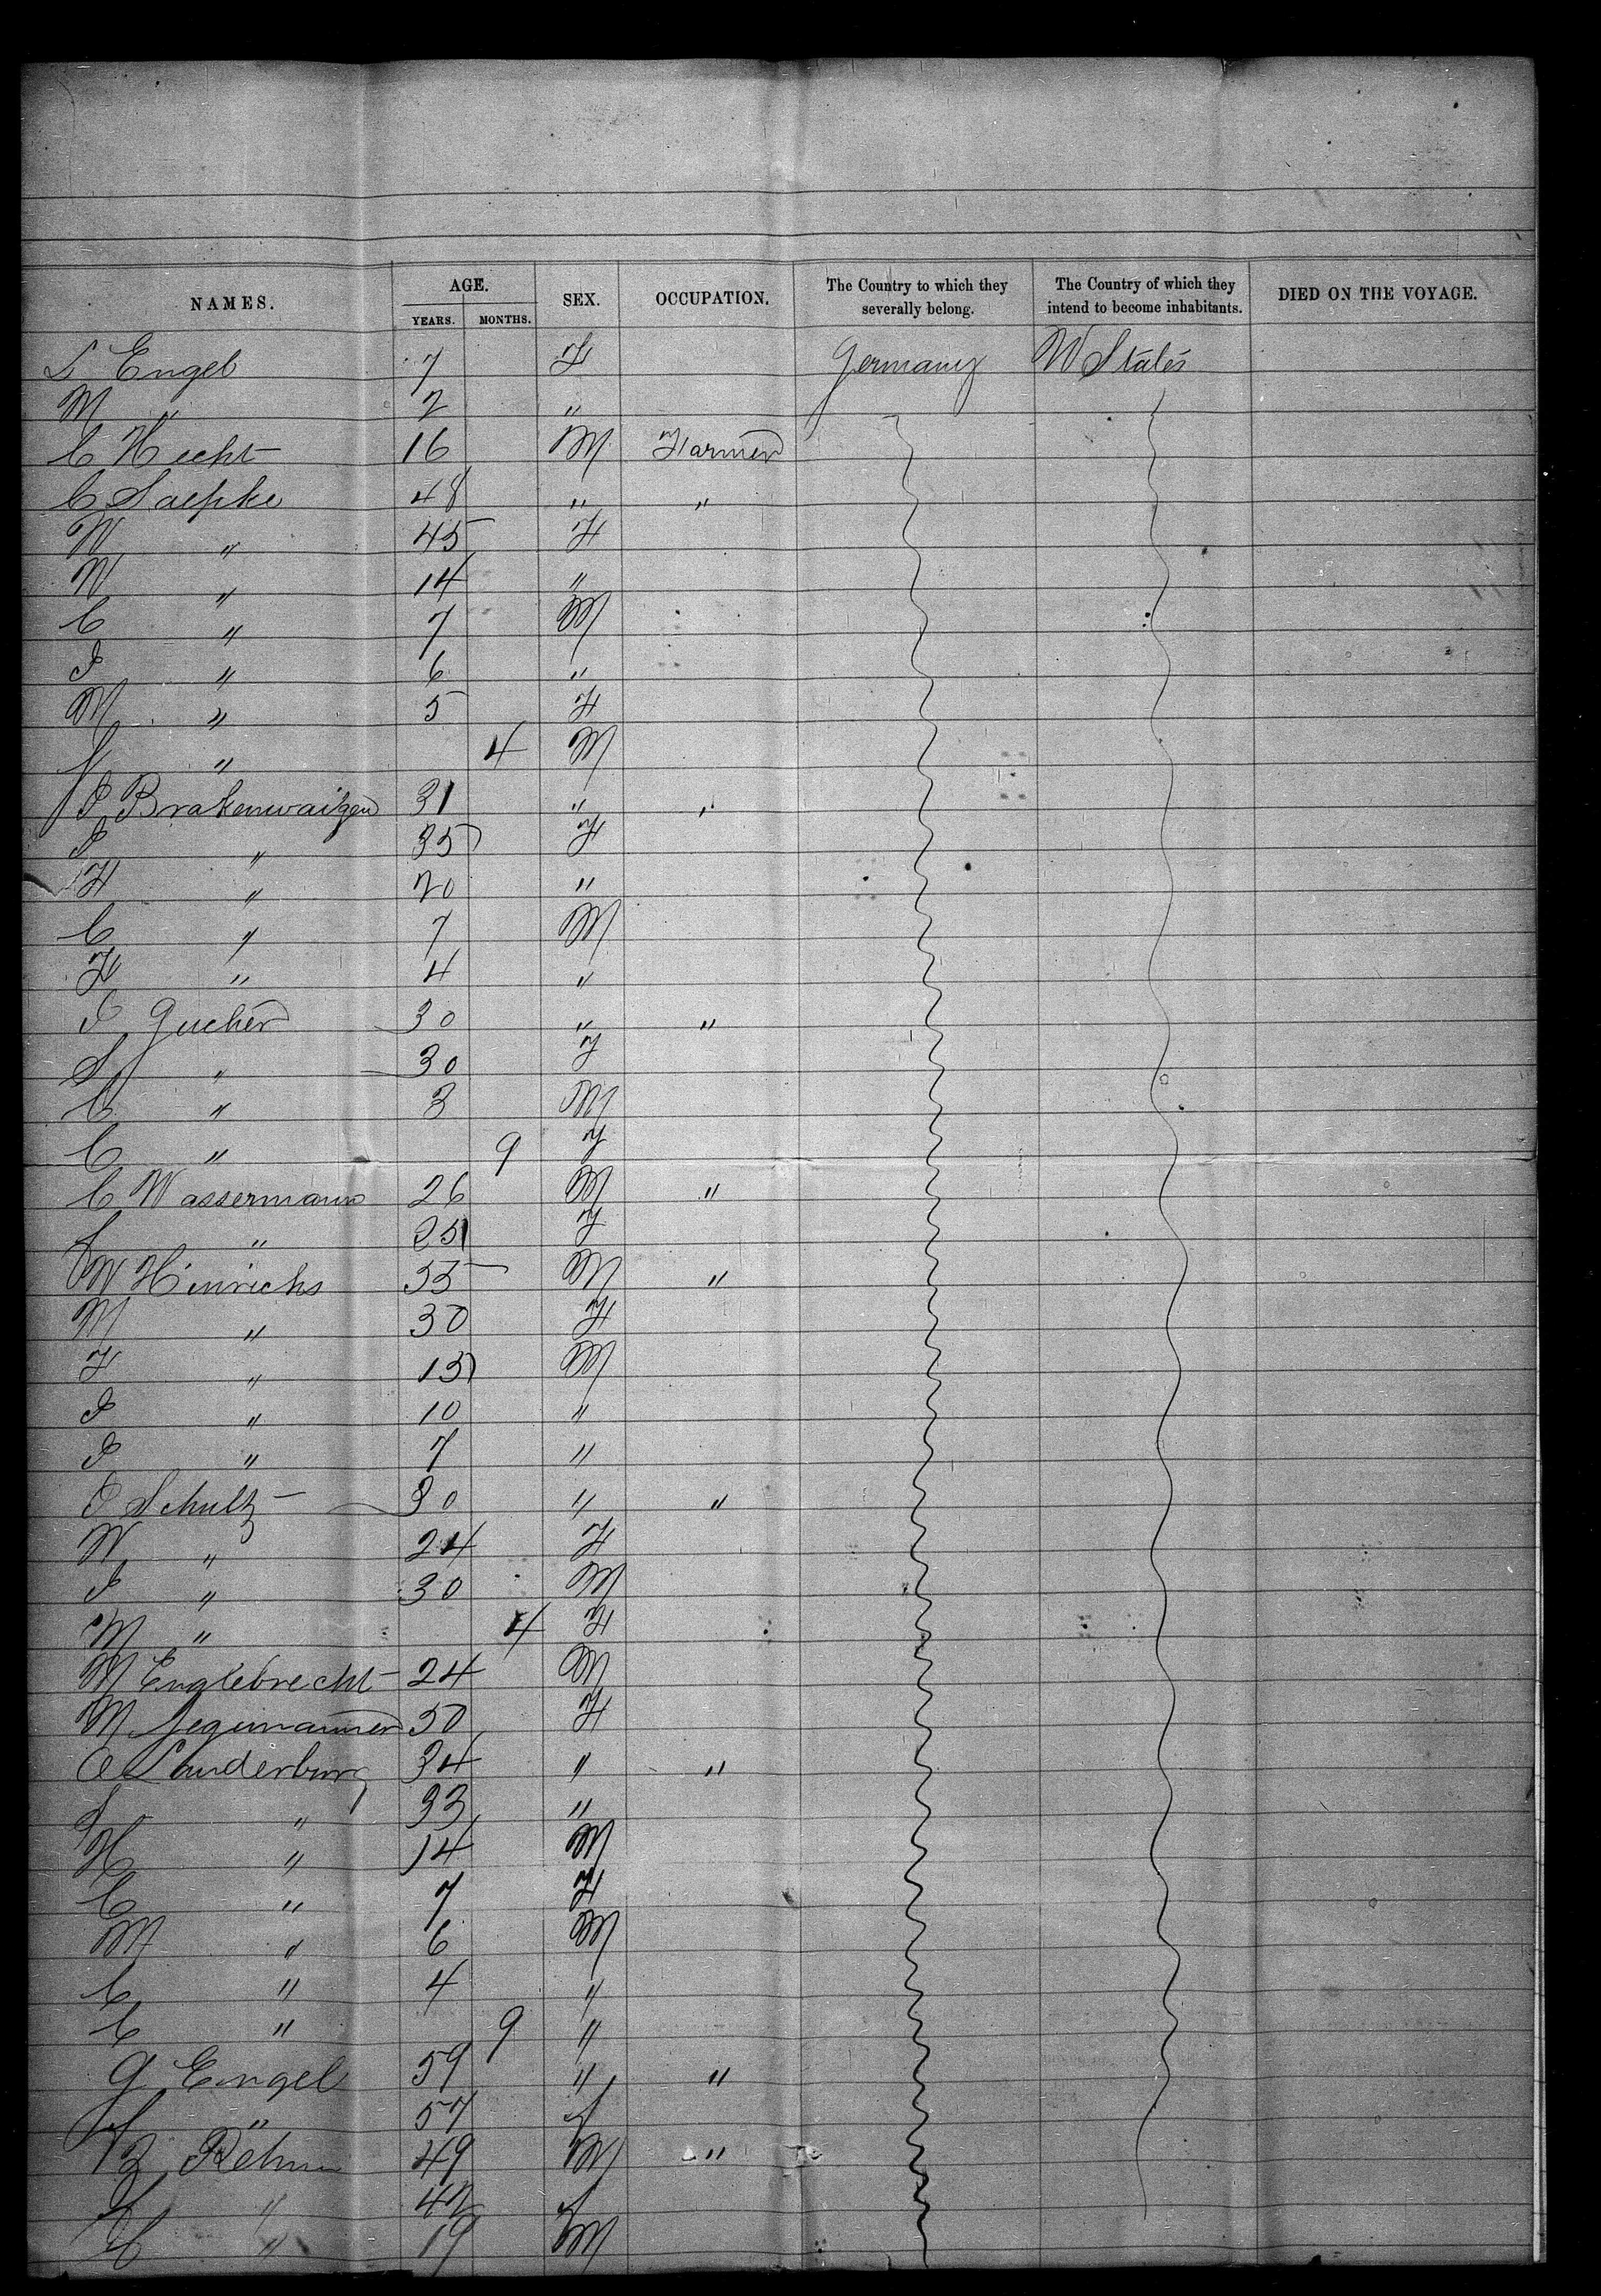 NAMES. AGE. YEARS. MONTHS. SEX. OCCUPATION. The Country to which they severally belong. The Country of which they intend to become inhabitants. DIED ON THE VOYAGE.
L Engel 7 F Germany U States
M " 2 "
C Hecht 16 M Farmer
C Saepke 48 " "
W " 45 F
W " 14 "
C " 7 M
J " 6 "
M " 5 F
" 4 M
J Brakenwaitzen 31 " "
J " 35 F
F " 20 "
C " 7 M
F " 4 "
J Gucher 30 " "
S " 30 F
C " 3 M
C " 9 F
C Wassermann 26 M "
S " 25 F
W Hinrichs 35 M "
M " 30 F
F " 15 M
J " 10 "
J " 7 "
J Schultz 30 " "
W " 24 F
J " 30 M
M " 4 F
M Englebrecht 24 M
M 50 F
C Sanderburg 34 " "
S " 33 "
H " 14 M
C " 7 F
M " 6 M
C " 4 "
C " 9 "
G Engel 59 " "
S " 57 F
Z Röhm 49 M "
S " 42 F
C " 19 M